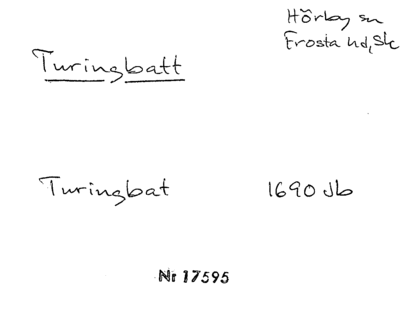 Hörby sn
Frosta hd, Sk
Turingbatt
Turingbat 1690 Jb
Nr 17595